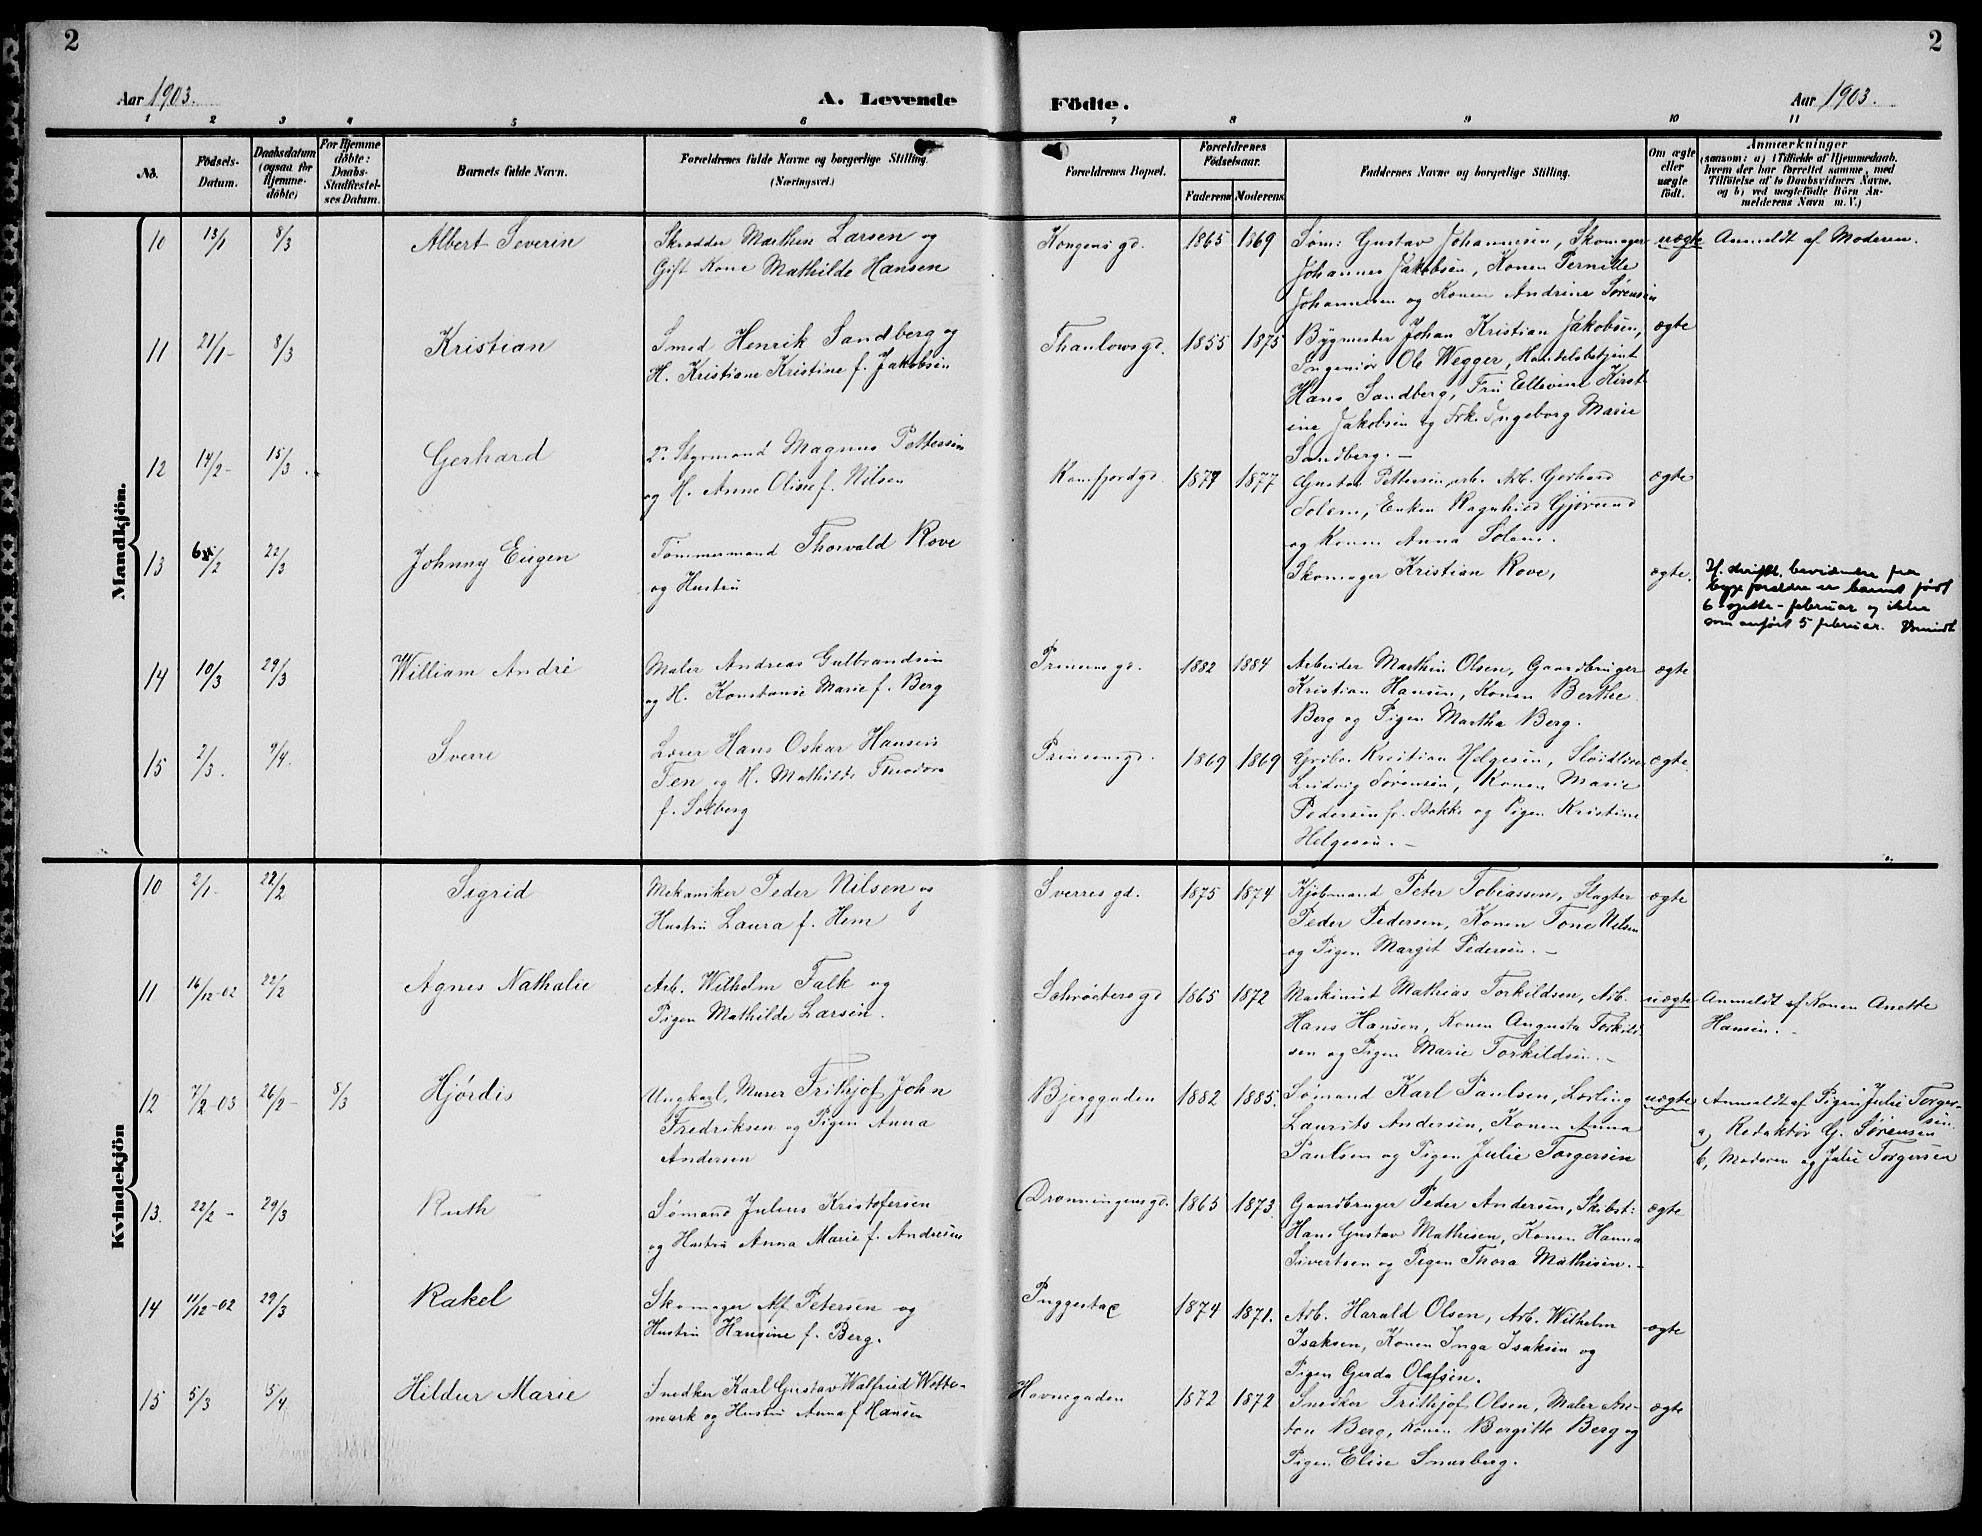 2
2
Aar 1903.
A. Levende
Födte.
Aar 1903.
1 2 3 4 5 6 7 8 9 10 11
No.
Födsels-
Datum.
Daabsdatum
(ogsaa for
Hjemme-
døbte)
For Hjemme
døbte:
Daabs-
Stadfæstel-
ses Datum.
Barnets fulde Navn.
Forældrenes fulde Navne og borgerlige Stilling.
(Næringsvei.)
Forældrenes Bopæl.
Forældrenes
Fødselsaar.
Faderens
Moderens
Faddernes Navne og borgerlige Stilling.
Om ægte
eller
uægte
födt.
Anmærkninger
(saasom: a) i Tilfælde af Hjemmedaab,
hvem der har forrettet samme, med
Tilföielse af to Daabsvidners Navne,
og b) ved uægtefödte Börn An-
melderens Navn m. V.)
Mandkjön.
10 13/1 8/3 Albert Severin
Skrædder Marthin Larsen og
Gift Kone Mathilde Hansen
Kongensgd. 1865 1869
Søm: Gustav Johannesen, Skomager
Johannes Jakobsen, Konen Pernille
Johannesen og Konen Andrine Sørensen
uægte
Anmeldt af Moderen.
11 21/1- 8/3 Kristian
Smed Henrik Sandberg og
H. Kristiane Kristine f. Jakobsen
Thaulowsgd. 1855 1875
Bygmester Johan Kristian Jakobsen,
Ingeniør Ole Wegger, Handelsbetjent
Hans Sandberg, Fru Ellevine Kirst-
ine Jakobsen og Frk. Ingeborg Marie
Sandberg. -
ægte
12 14/2- 15/3. Gerhard
2. Styrmand Magnus Pettersen
og H. Anne Oline f. Nilsen
Kamfjordgd. 1877
Gustav Pettersen, Arb. Gerhard
Solem, Enken Ragnhild Gjørund
og Konen Anna Solem.
ægte
13 6/2 22/3 Johnny Eugen
Tømmermand Thorvald Rove
og Hustru
Skomager Kristian Rove,
ægte.
If. skriftl. bevidnelse fra
begge foreldre er barnet født
6 sjette - februar og ikke
som anført 5 februar.
14 10/3 29/3 William André
Maler Andreas Gulbrandsen
og H. Konstanse Marie f. Berg
Prinsensgd. 1882 1884
Arbeider Marthin Olsen, Gaardbruger
Kristian Hansen, Konen Berthe
Berg og Pigen Martha Berg.
ægte
15 2/3. 9/4. Sverre
Lærer Hans Oskar Hansen
Fen og H. Mathilde Theodora
f. Solberg
Prinsensgd. 1869 1869
Kristian Helgesen, Sløidlærer
Ludvig Sørensen, Konen Marie
Pedersen fr. Bakke og Pigen Kristine
Helgesen. -
ægte
Kvindekjön
10 2/1- 22/2 Sigrid
Mekaniker Peder Nilsen og
Hustru Laura f. Hem
Sverresgd. 1875 1874
Kjøbmand Peter Tobiassen, Slagter
Peder Pedersen, Konen Tone Nilsen
og Pigen Margit Pedersen. -
ægte
11 16/12-02 22/2 Agnes Nathalie
Arb. Wilhelm Falk og
Pigen Mathilde Larsen.
Schrøtersgd 1865 1872
Maskinist Mathias Torkildsen, Arb.
Hans Hansen, Konen Augusta Torkild-
sen og Pigen Marie Torkildsen. -
uægte
Anmeldt af Konen Anette
Hansen. -
12 7/2-03 26/2- 8/3 Hjørdis
Ungkarl, Murer Frithjof John
Fredriksen og Pigen Anna
Andersen
Bjerggaden 1882 1885.
Sømand Karl Paulsen, Lærling
Laurits Andersen, Konen Anna
Paulsen og Pigen Julie Torgersen
uægte
Anmeldt af Pigen Julie Torger-
sen.
a, Redaktør G. Sørensen
b, Moderen og Julie Torgersen
13. 22/2- 29/3 Ruth
Sømand Julius Kristofersen
og Hustru Anna Marie f. Andersen
Dronningensgd. 1865 1873.
Gaardbruger Peder Andersen, Skibst:
Hans Gustav Mathisen, Konen Hanna
Sivertsen og Pigen Thora Mathisen. -
ægte
14 11/12-02 29/3 Rakel
Skomager Alf Petersen og
Hustru Hansine f. Berg.
Puggestae 1874 1871.
Arb. Harald Olsen, Arb. Wilhelm
Isaksen, Konen Inga Isaksen og
Pigen Gerda Olafsen.
ægte
15 5/3 5/4 Hildur Marie
Snedker Karl Gustav Walfrid Wette-
mark og Hustru Anna f Hansen
Havnegaden 1872 1872
Snedker Frithjof Olsen, Maler An-
ton Berg, Konen Bergitte Berg og
Pigen Elise Snarberg.
ægte